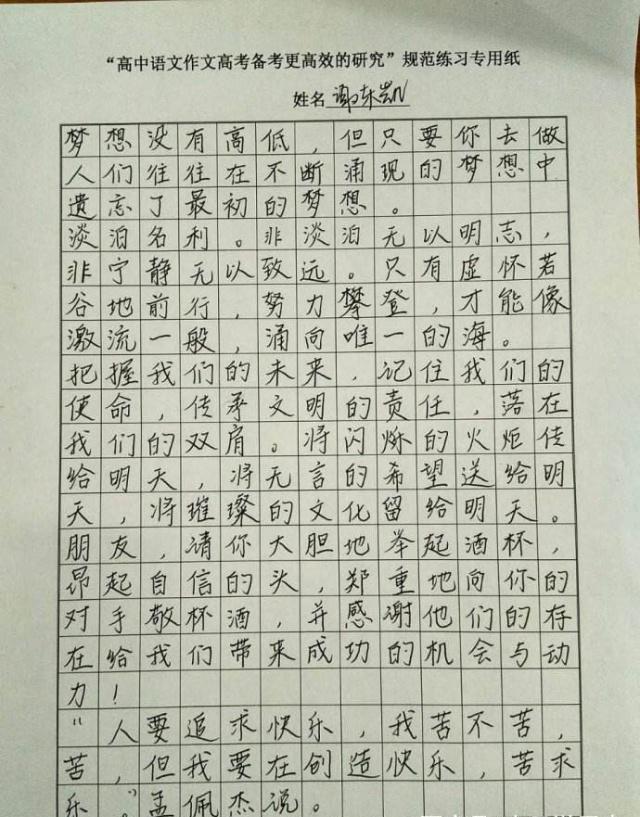 “高中语文作文高考备考更高效的研究”规范练习专用纸
姓名 谢东凯
梦想没有高低，但只要你去做
人们往往在不断涌现的梦想中
遗忘了最初的梦想。
淡泊名利。非淡泊无以明志，
非宁静无以致远。只有虚怀若
谷地前行，努力攀登，才能像
激流一般，涌向唯一的海。
把握我们的未来，记住我们的
使命，传承文明的责任，落在
我们的双肩。将闪烁的火炬传
给明天，将无言的希望送给明
天，将璀璨的文化留给明天。
朋友，请你大胆地举起酒杯，
昂起自信的头，郑重地向你的
对手敬杯酒，并感谢他们的存
在给我们带来成功的机会与动
力！
“人要追求快乐，我苦不苦，
苦，但我要在创造快乐，苦求
乐。”孟佩杰说。